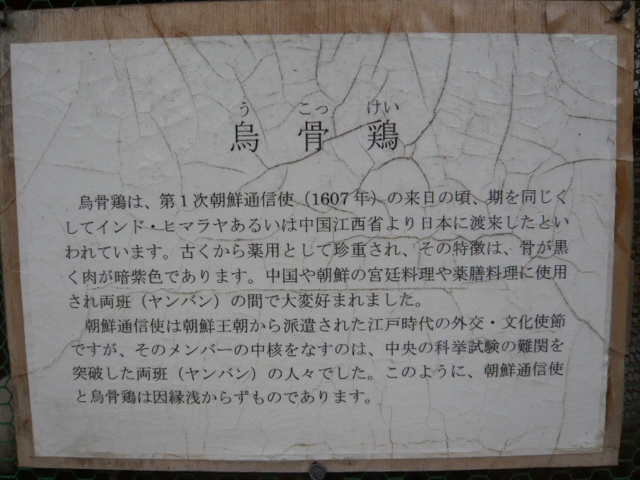 う こっ けい
烏 骨 鶏
烏骨鶏は、第1次朝鮮通信使（1607年）の来日の頃、期を同じく
してインド・ヒマラヤあるいは中国江西省より日本に渡来したとい
われています。古くから薬用として珍重され、その特徴は、骨が黒
く肉が暗紫色であります。中国や朝鮮の宮廷料理や薬膳料理に使用
され両班（ヤンバン）の間で大変好まれました。
朝鮮通信使は朝鮮王朝から派遣された江戸時代の外交・文化使節
ですが、そのメンバーの中核をなすのは、中央の科挙試験の難関を
突破した両班（ヤンバン）の人々でした。このように、朝鮮通信使
と烏骨鶏は因縁浅からずものであります。